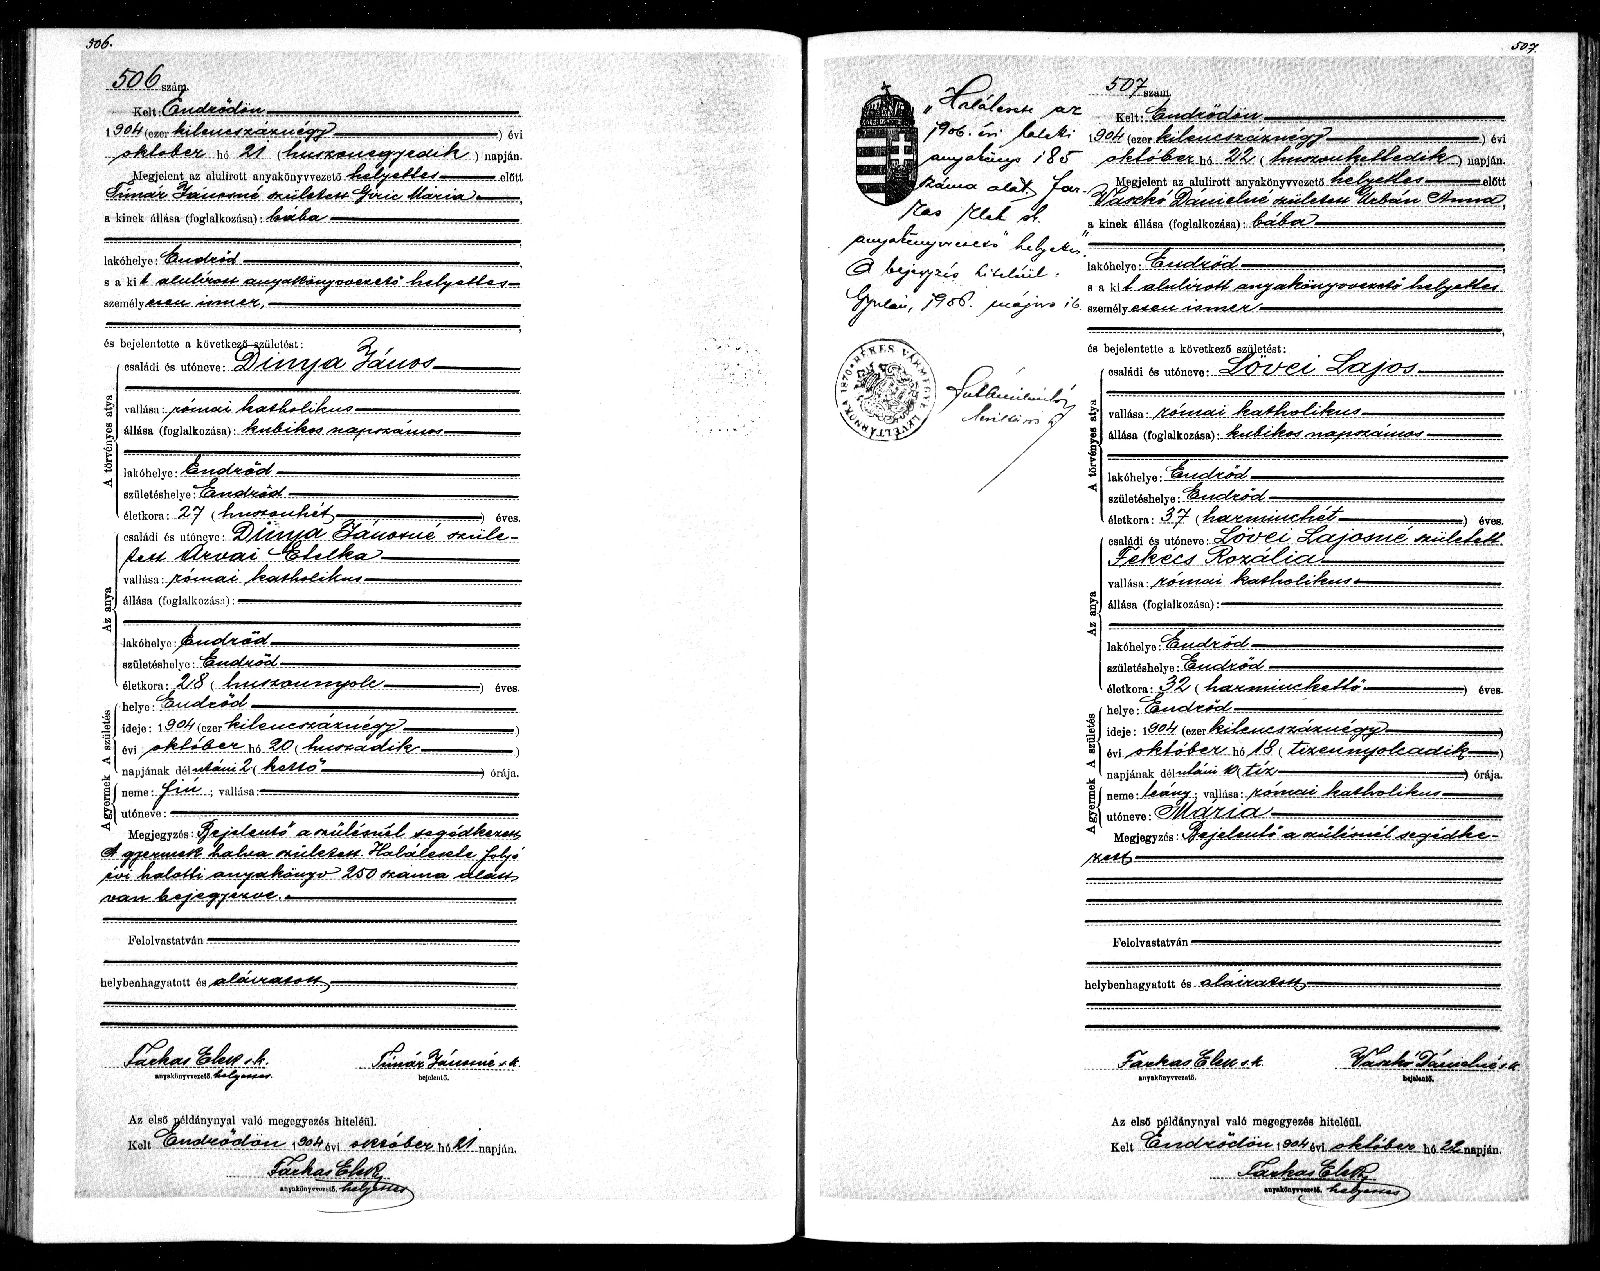 506.
506 szám.
Kelt: Endrődön
1904 (ezer kilencszáznégy) évi
oktober hó 21 (huszonegyedik) napján.
Megjelent az alulirott anyakönyvvezető helyettes előtt
Timár Jánosné született Giric Mária,
a kinek állása (foglalkozása): bába
lakóhelye: Endrőd
s a kit alulirott anyakönyvvezető helyettes
személyesen ismer,
és bejelentette a következő születést:
A törvényes atya
családi és utóneve: Dinya János
vallása: római katholikus
állása (foglalkozása): kubikos napszámos
lakóhelye: Endrőd
születéshelye: Endrőd
életkora: 27 (huszonhét) éves.
Az anya
családi és utóneve: Dinya Jánosné szüle-
tett Arvai Etelka
vallása: római katholikus
állása (foglalkozása):
lakóhelye: Endrőd
születéshelye: Endrőd
életkora: 28 (huszonnyolc) éves.
A születés
helye: Endrőd
ideje: 1904 (ezer kilencszáznégy)
évi október hó 20 (huszadik)
napjának délutáni 2 (kettő) órája.
A gyermek
neme: fiú; vallása:
utóneve:
Megjegyzés: Bejelentő a szülésnél segédkezett
A gyermek halva született Halálesete folyó
évi halotti anyakönyv 250 száma alatt
van bejegyezve.
Felolvastatván
helybenhagyatott és aláiratott
Farkas Elek s.k. Timár Jánosné s.k.
anyakönyvvezető helyettes bejelentő.
Az első példánynyal való megegyezés hiteléül.
Kelt Endrődön 1904 évi október hó 21 napján.
Farkas Elek
anyakönyvvezető. helyettes
507.
"Halálesete az
1906. évi haláli
anyakönyv 185
száma alatt. Far-
kas Elek sk.
anyakönyvvezető helyettes"
A bejegyzés hiteléül.
Gyulán, 1906. május 16
BÉKES VÁRMEGYE LEVÉLTÁRNOKA 1870
507 szám.
Kelt: Endrődön
1904 (ezer kilencszáznégy) évi
október hó 22 (huszonkettedik) napján.
Megjelent az alulirott anyakönyvvezető helyettes előtt
Vaszkó Dánielné született Urbán Anna,
a kinek állása (foglalkozása): bába
lakóhelye: Endrőd
s a kit alulirott anyakönyvvezető helyettes
személyesen ismer
és bejelentette a következő születést:
A törvényes atya
családi és utóneve: Lövei Lajos
vallása: római katholikus
állása (foglalkozása): kubikos napszámos
lakóhelye: Endrőd
születéshelye: Endrőd
életkora: 37 (harminchét) éves.
Az anya
családi és utóneve: Lövei Lajosné született
Fekécs Rozália
vallása: római katholikus
állása (foglalkozása):
lakóhelye: Endrőd
születéshelye: Endrőd
életkora: 32 (harminckettő) éves.
A születés
helye: Endrőd
ideje: 1904 (ezer kilencszáznégy)
évi október hó 18 (tizennyolcadik)
napjának délutáni 10 (tíz) órája.
A gyermek
neme: leány; vallása: római katholikus
utóneve: Mária
Megjegyzés: Bejelentő a szülésnél segédke-
zett
Felolvastatván
helybenhagyatott és aláiratott
Farkas Elek s.k. Vaszkó Dánielné s.k.
anyakönyvvezető. bejelentő.
Az első példánynyal való megegyezés hiteléül.
Kelt Endrődön 1904 évi október hó 22 napján.
Farkas Elek
anyakönyvvezető. helyettes